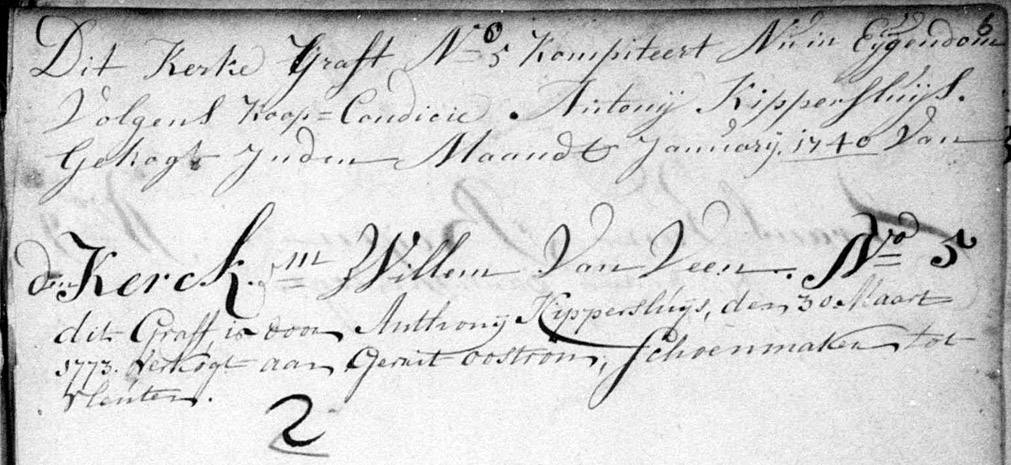 6
Dit Kerke Graft No 5 Kompiteert Nu in Eygendom
Volgens Koop=Condicie. Antonij Kippersluijs.
Gekogt Inden Maandt Januarij. 1740 Van
den Kerckm Willem Van Veen. No 5
dit Graff, is door Anthonij Kippersluijs, den 30 Maart
1773. Verkogt aan Gerrit oostrom, Schoenmaker tot
Vleuten.
2